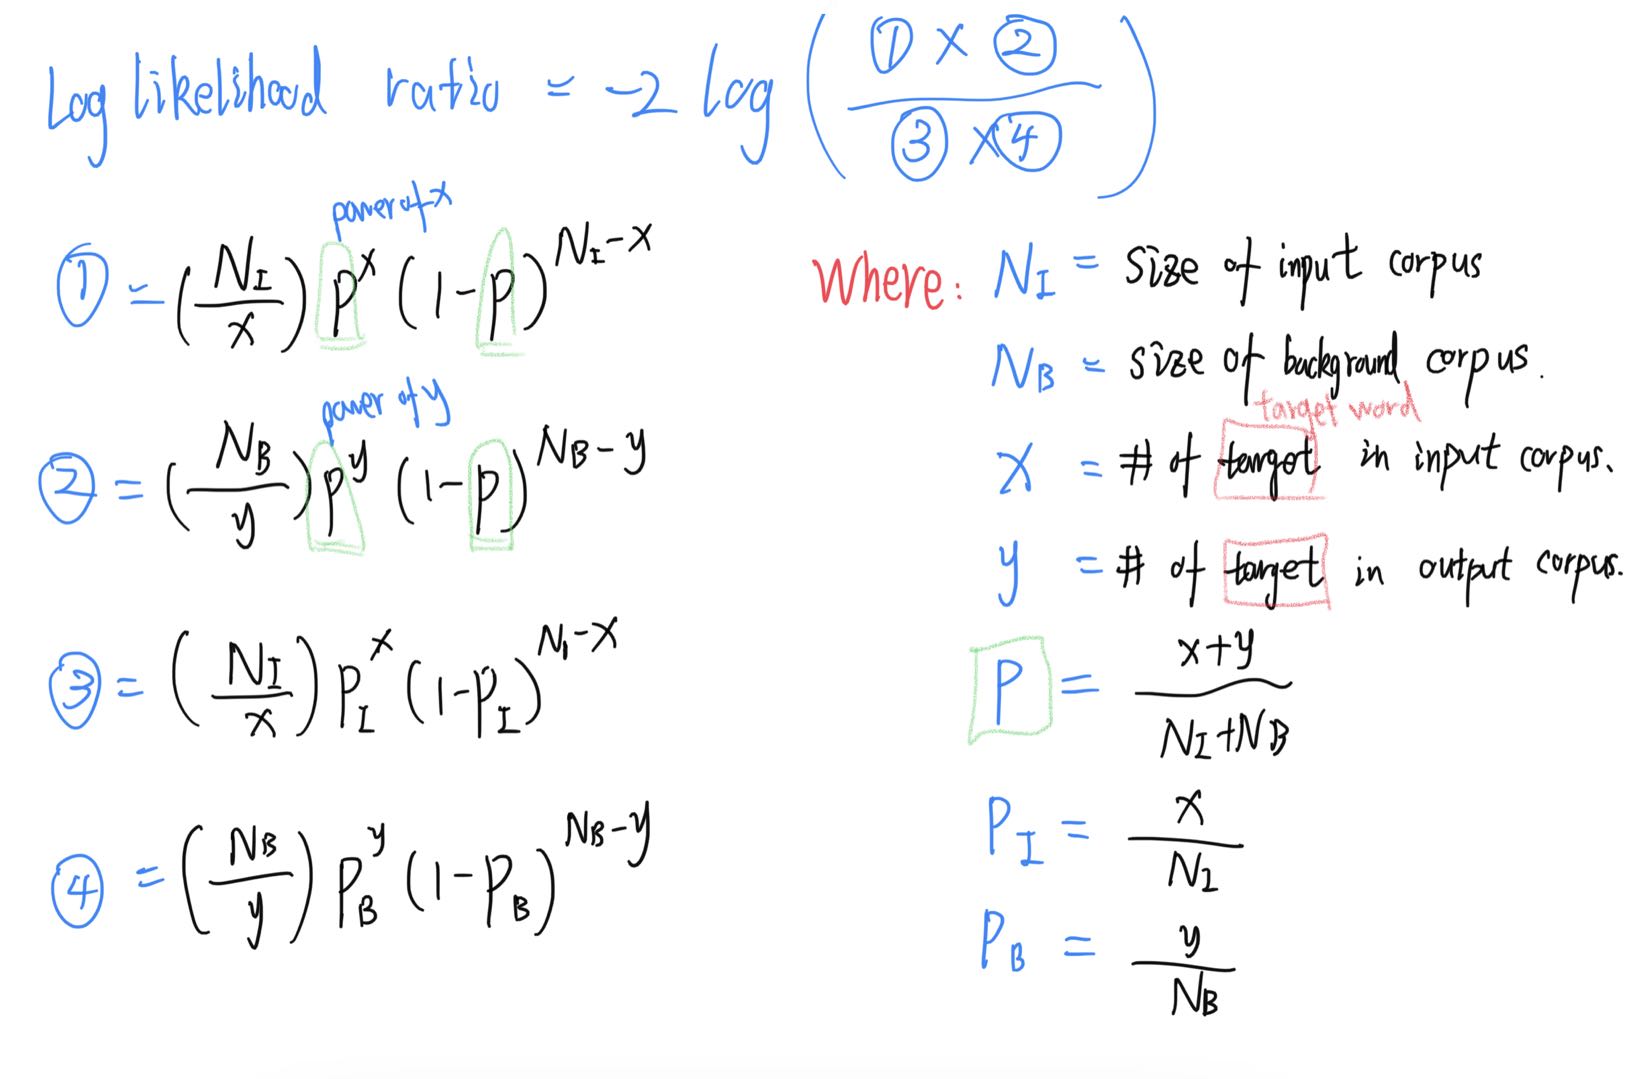 Log likelihood ratio = -2 log ( ① × ② / ③ × ④ )
power of x
① = (N_I / x) p^x (1-p)^(N_I - x)
power of y
② = (N_B / y) p^y (1-p)^(N_B - y)
③ = (N_I / x) P_I^x (1-P_I)^(N_I - x)
④ = (N_B / y) P_B^y (1-P_B)^(N_B - y)
Where: N_I = size of input corpus
N_B = size of background corpus.
target word
x = # of target in input corpus.
y = # of target in output corpus.
P = x+y / N_I+N_B
P_I = x / N_I
P_B = y / N_B